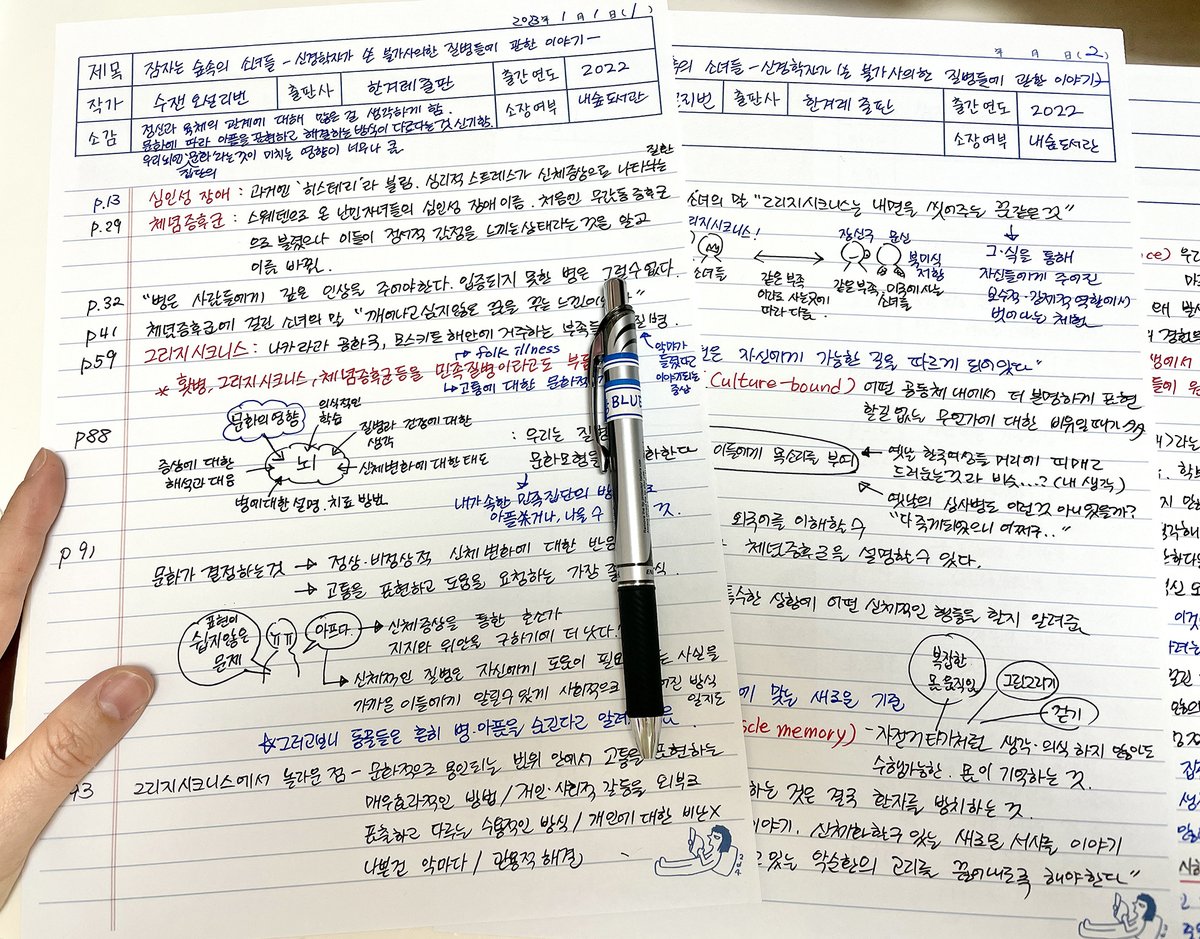 2023년 1월 1일 (1)
제목 잠자는 숲속의 소녀들 - 신경학자가 쓴 불가사의한 질병들에 관한 이야기 -
작가 수잰 오설리번 출판사 한겨레출판 출간연도 2022
소감 정신과 육체의 관계에 대해 많은 걸 생각하게 함. 소장여부 내숲도서관
문화에 따라 아픔을 표현하고 해결하는 방식이 다르다는 것 신기함.
우리 뇌엔 '문화'라는 것이 미치는 영향이 너무나 큼.
집단의
p.13 심인성 장애 : 과거엔 '히스테리'라 불림. 심리적 스트레스가 신체증상으로 나타나는 질환
p.29 체념증후군 : 스웨덴으로 온 난민자녀들의 심인성 장애 이름. 처음엔 무감동 증후군
으로 불렸으나 이들이 정서적 감정을 느끼는 상태라는 것을 알고
이름 바뀜.
p.32 "병은 사람들에게 깊은 인상을 주어야한다. 입증되지 못한 병은 그럴 수 없다.
p41 체념증후군에 걸린 소녀의 말 "깨어나고 싶지않은 꿈을 꾸는 느낌이
p59 그리지시크니스 : 니카라과 공화국, 모스키토 해안에 거주하는 부족 질병.
악마가 들렸다고 이야기되는 증상
folk illness
* 홧병, 그리지시크니스, 체념증후군등을 민족질병이라고도 부
고통에 대한 문화적
p88 문화의 영향
의식적인 학습
질병과 건강에 대한 생각
뇌
증상에 대한 해석과 대응
신체변화에 대한 태도
병에대한 설명. 치료 방법.
: 우리는 질병
문화모형을 화한다
내가 속한 민족집단의 방
아플 수 있거나, 나을 수 것.
p91 문화가 결정하는것 → 정상·비정상적 신체 변화에 대한 반응
→ 고통을 표현하고 도움을 요청하는 가장
표현이 쉽지않은 문제
ㅠㅠ
아프다
신체증상을 통한 호소가
지지와 위안을 구하기에 더 낫다.
신체적인 질병은 자신에게 도움이 필요 는 사실을
가까운 이들에게 알릴수 있게 사회적으로 어진 방식
일지도
☆그러고보니 동물들은 흔히 병·아픔을 숨긴다고 알려
93 그리지시크니스에서 놀라운 점 - 문화적으로 용인되는 범위 안에서 고통을 표현하는
매우효과적인 방법 / 개인·사회적 갈등을 외부로
표출하고 다루는 수용적인 방식 / 개인에 대한 비난X
나쁜건 악마다 / 관용적 해결
BLUE
년 월 일 (2)
속의 소녀들 - 신경학자가 쓴 불가사의한 질병들에 관한 이야기 -
리번 출판사 한겨레 출판 출간연도 2022
소장여부 내숲도서관
소녀의 말 "그리지시크니스는 내면을 씻어주는 꿈같은 것"
리지시크니스!
소녀들
같은 부족
이라도 사는곳에
따라 다름.
장신구 문신
북미식
저항
같은 부족, 미국에 사는
소녀들
그·식을 통해
자신들에게 주어진
보수적·강제적 역할에서
벗어나는 체험
은 자신에게 가능한 길을 따르게 되어있다"
(culture-bound) 어떤 공동체 내에서 더 분명하게 표현
할길 없는 무언가에 대한 비유일 때가
이들에게 목소리를 부여
옛날 한국여성들 머리에 띠매고
드러눕는것과 비슷...? (내 생각)
옛날의 상사병도 이런것 아니었을까?
"다 죽게되었으니 어쩌구.."
외국어를 이해할 수
체념증후군을 설명할 수 있다.
특수한 상황에 어떤 신체적인 행동을 할지 알려준
복잡한 몸 움직임
그림그리기
걷기
에 맞는 새로운 기준
scle memory) - 자전거타기처럼 생각·의식 하지 않아도
수행가능한. 몸이 기억하는 것.
하는 것은 결국 환자를 방치하는 것.
이야기. 신체화하고 있는 새로운 서사를 이야기
고 있는 악순환의 고리를 끊어내도록 해야한다"